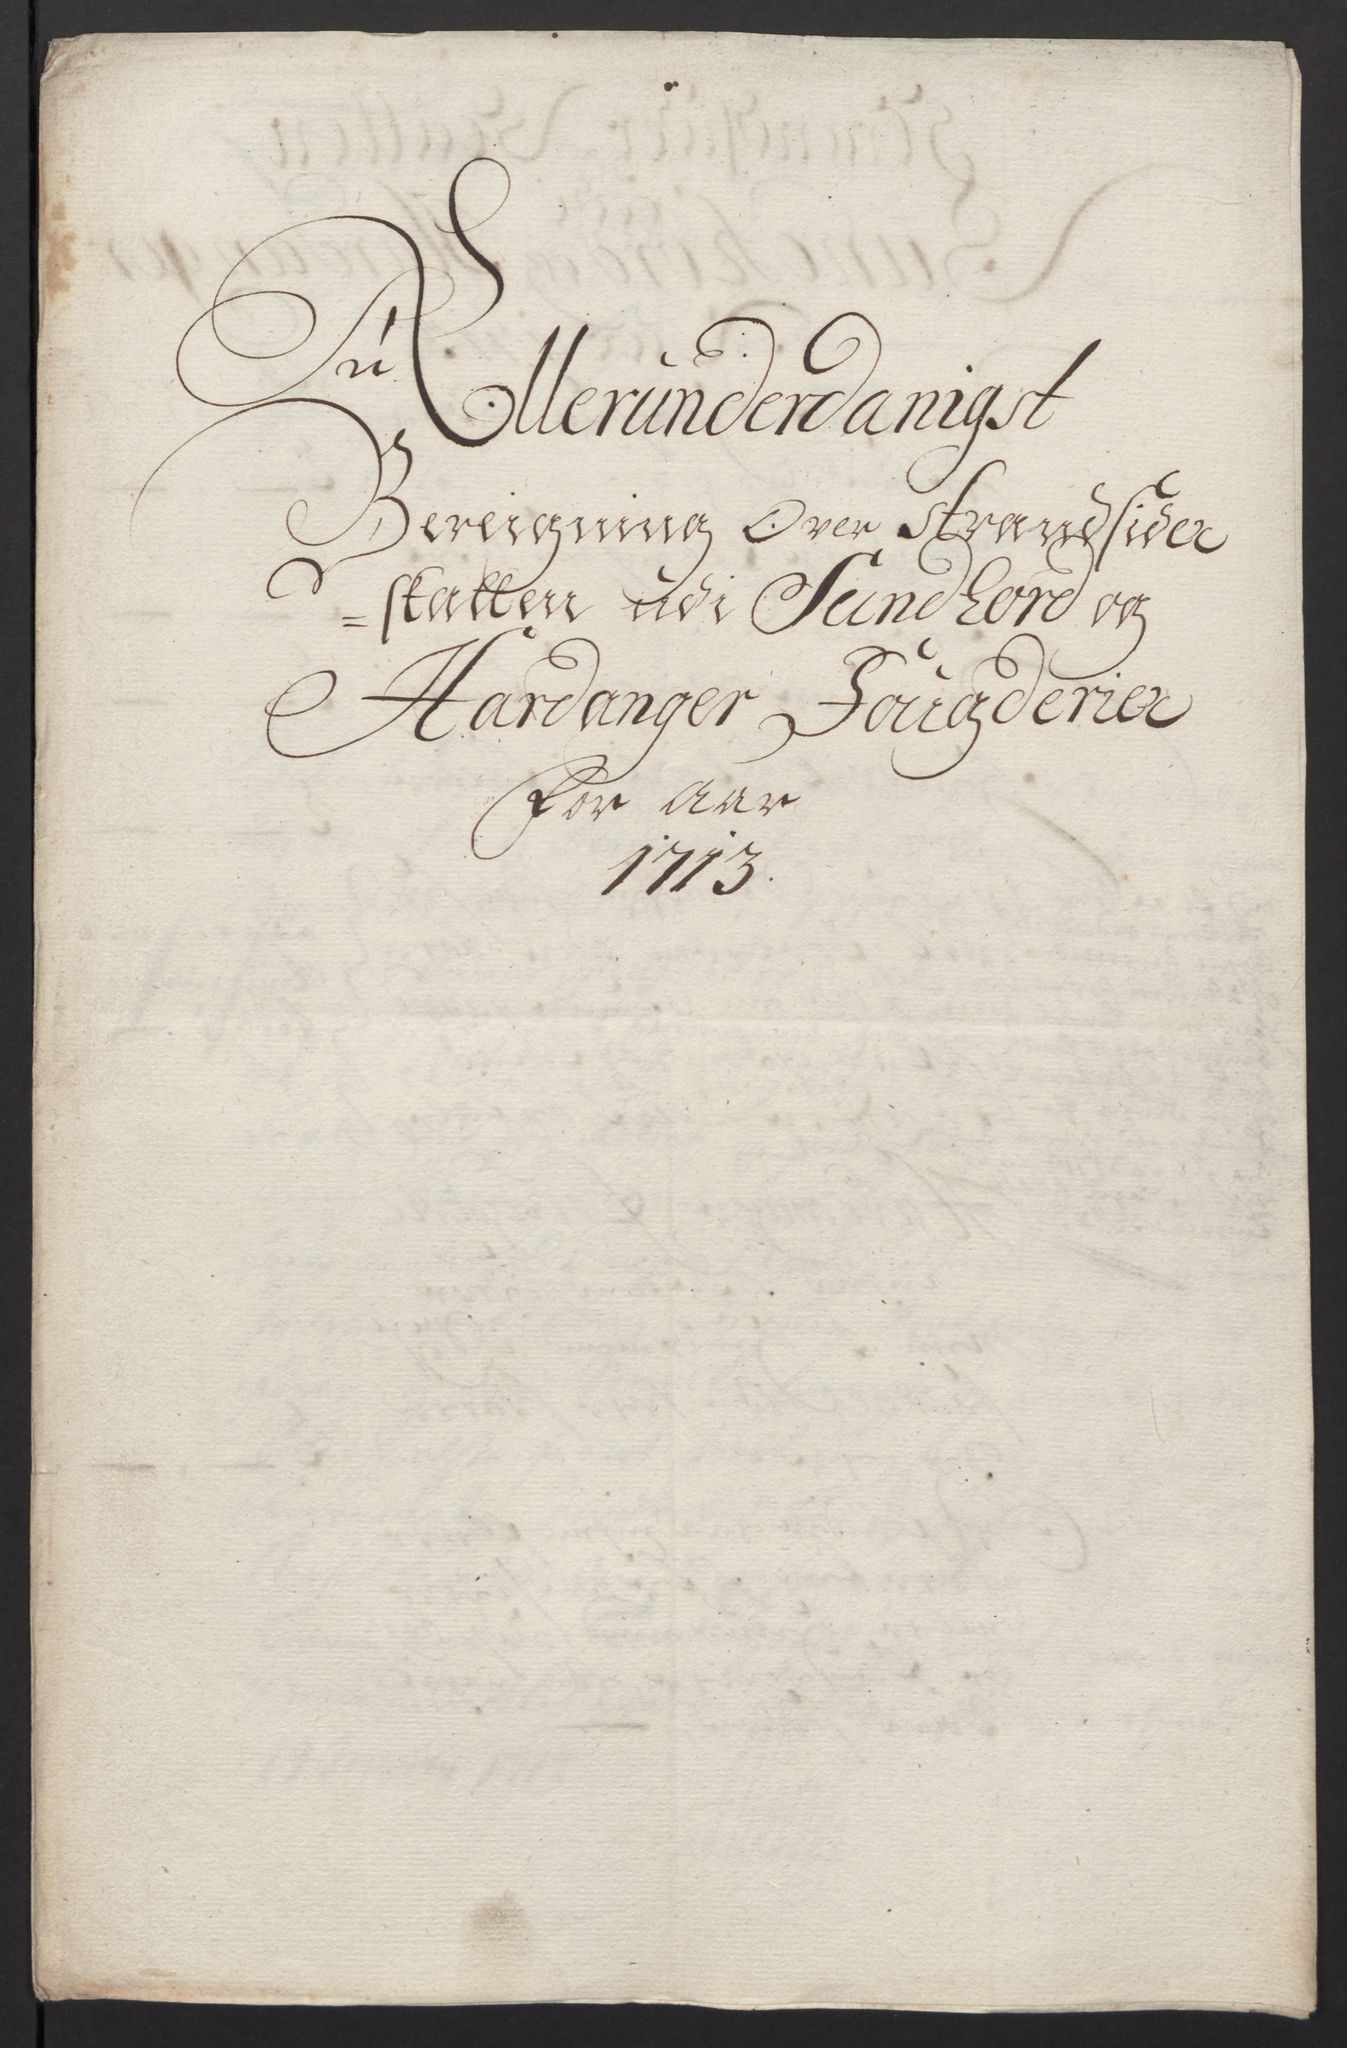 En Allerunderdanigst
Bereigning Over Strandsider
=skatten udi Sundhord og
Hardanger Fougderier
For Aar
1713.